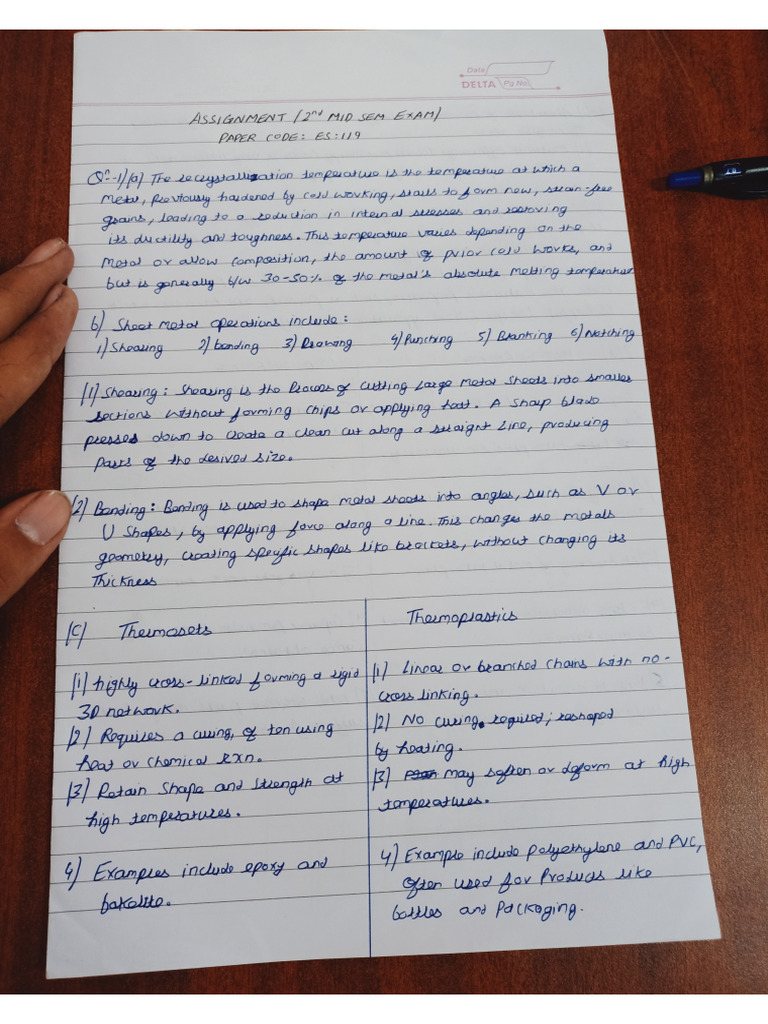 Date
DELTA Pg No.
ASSIGNMENT (2nd MID SEM EXAM)
PAPER CODE: ES:119
Qn-1) (a) The recrystallization temperature is the temperature at which a
metal, previously hardened by cold working, starts to form new, strain-free
grains, leading to a reduction in internal stresses and
its ductility and toughness. This temperature varies depending on the
metal or allow composition, the amount of prior cold works, and
but is generally b/w 30-50% of the metal's absolute melting temperature
b) Sheet metal operations include:
1) Shearing 2) bending 3) Drawing 4) Punching 5) Blanking 6) Notching
(1) Shearing: Shearing is the Process of cutting large metal sheets into smaller
sections without forming chips or applying heat. A sharp blade
presses down to create a clean cut along a straight line, producing
parts of the desired size.
(2) Bending: Bending is used to shape metal sheets into angles, such as V or
U shapes, by applying force along a line. This changes the metals
geometry, creating specific shapes like brackets, without changing its
Thickness
(C) Thermosets
(1) highly cross-linked forming a rigid
3D network.
(2) Requires a curing, often using
heat or chemical rxn.
(3) Retain Shape and strength at
high temperatures.
4) Examples include epoxy and
bakelite.
Thermoplastics
(1) Linear or branched chains with no-
cross linking.
(2) No curing required; reshaped
by heating.
(3) may soften or deform at high
temperatures.
4) Example include polyethylene and PVC,
often used for Products like
bottles and packaging.